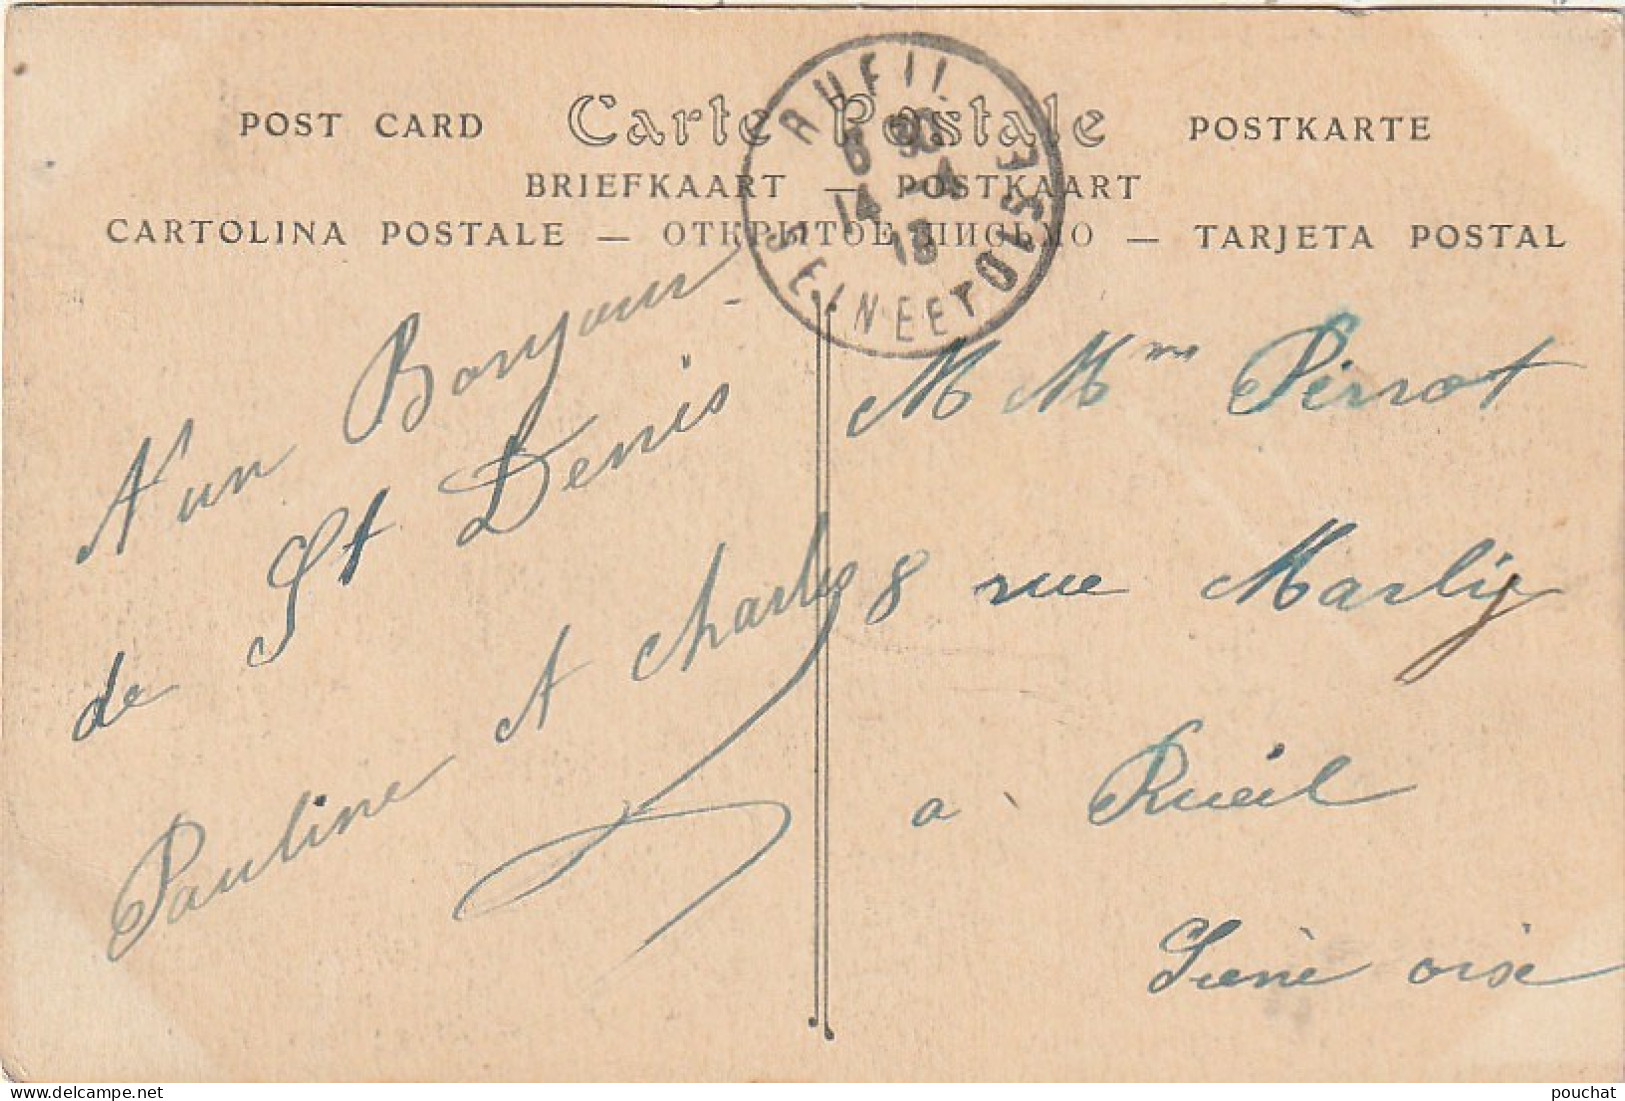 POST CARD Carte Postale POSTKARTE
BRIEFKAART — POSTKAART
CARTOLINA POSTALE — ОТКРЫТОЕ ПИСЬМО — TARJETA POSTAL
RUEIL
6 30
14 - 4
13
SEINE ET OISE
N'un Bonjour
de St Denis
Pauline et Charles
M Mme Perrot
8 rue Marly
à Rueil
Seine oise
pouchat